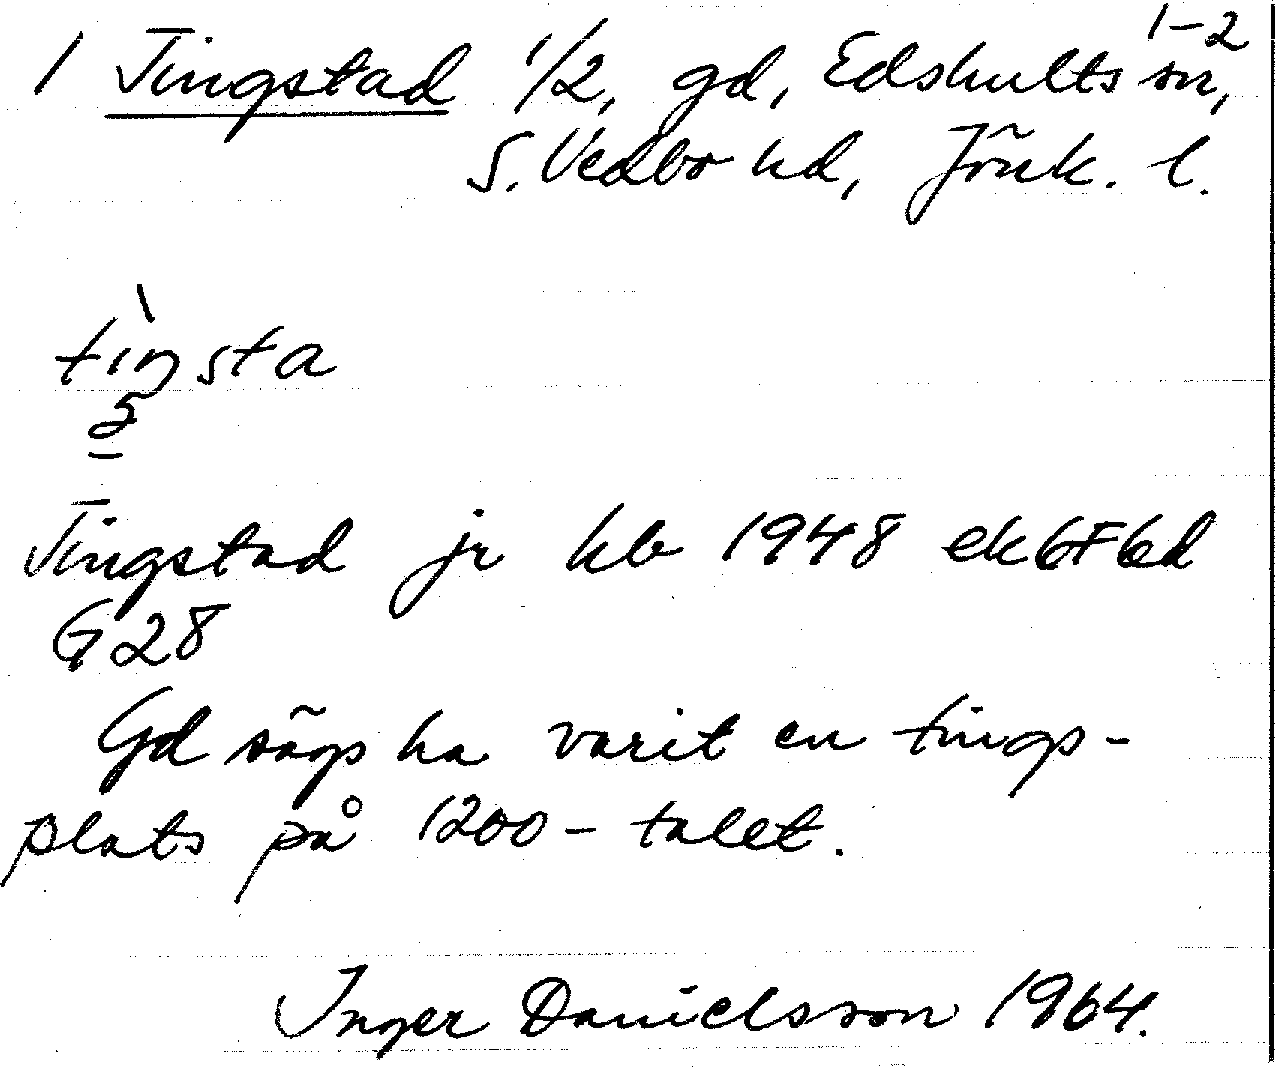 1-2
1 Tingstad 1/2, gd, Edshults sn,
S. Vedbo hd, Jönk. l.
tìŋsta
Tingstad jr kb 1948 ekbl 6F6d
G 28
Gd sägs ha varit en tings-
plats på 1200-talet.
Inger Danielsson 1964.